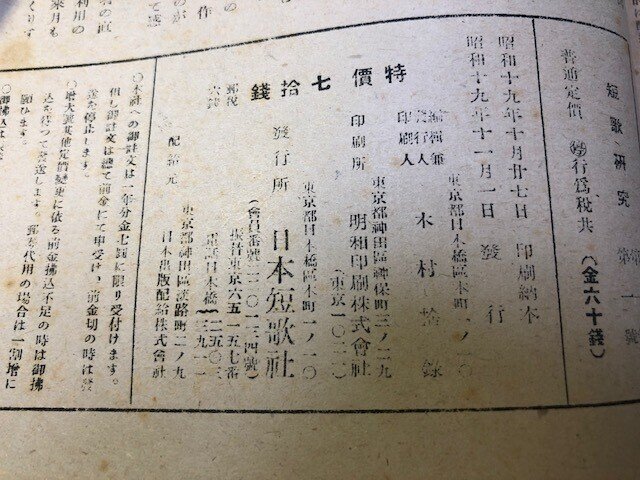 短歌研究 第一號
普通定價 ㊞行爲税共 (金六十錢)
昭和十九年十月廿七日 印刷納本
昭和十九年十一月一日 發行
特價七拾錢
郵税
六錢
東京都日本橋區本町一ノ一〇
編輯兼
發行人
印刷人
木村
錄
東京都神田區神保町三ノ二九
印刷所 明和印刷株式會社
(東京一〇二二)
東京都日本橋區本町一ノ一〇
發行所 日本短歌社
(會員番號二二〇一三四號)
振替東京六五一五七番
電話日本橋 二五〇三
三九一一
東京都神田區淡路町二ノ九
配給元 日本出版配給株式會社
〇本社への御註文は一年分金七圓に限り受付けます。
但し御註文は總て前金にて申受け、前金切の時は發
送を停止します。
〇增大號其他定價變更に依る前金拂込不足の時は御拂
込を待つて發送します。郵券代用の場合は一割增に
願ひます。
〇御拂込は